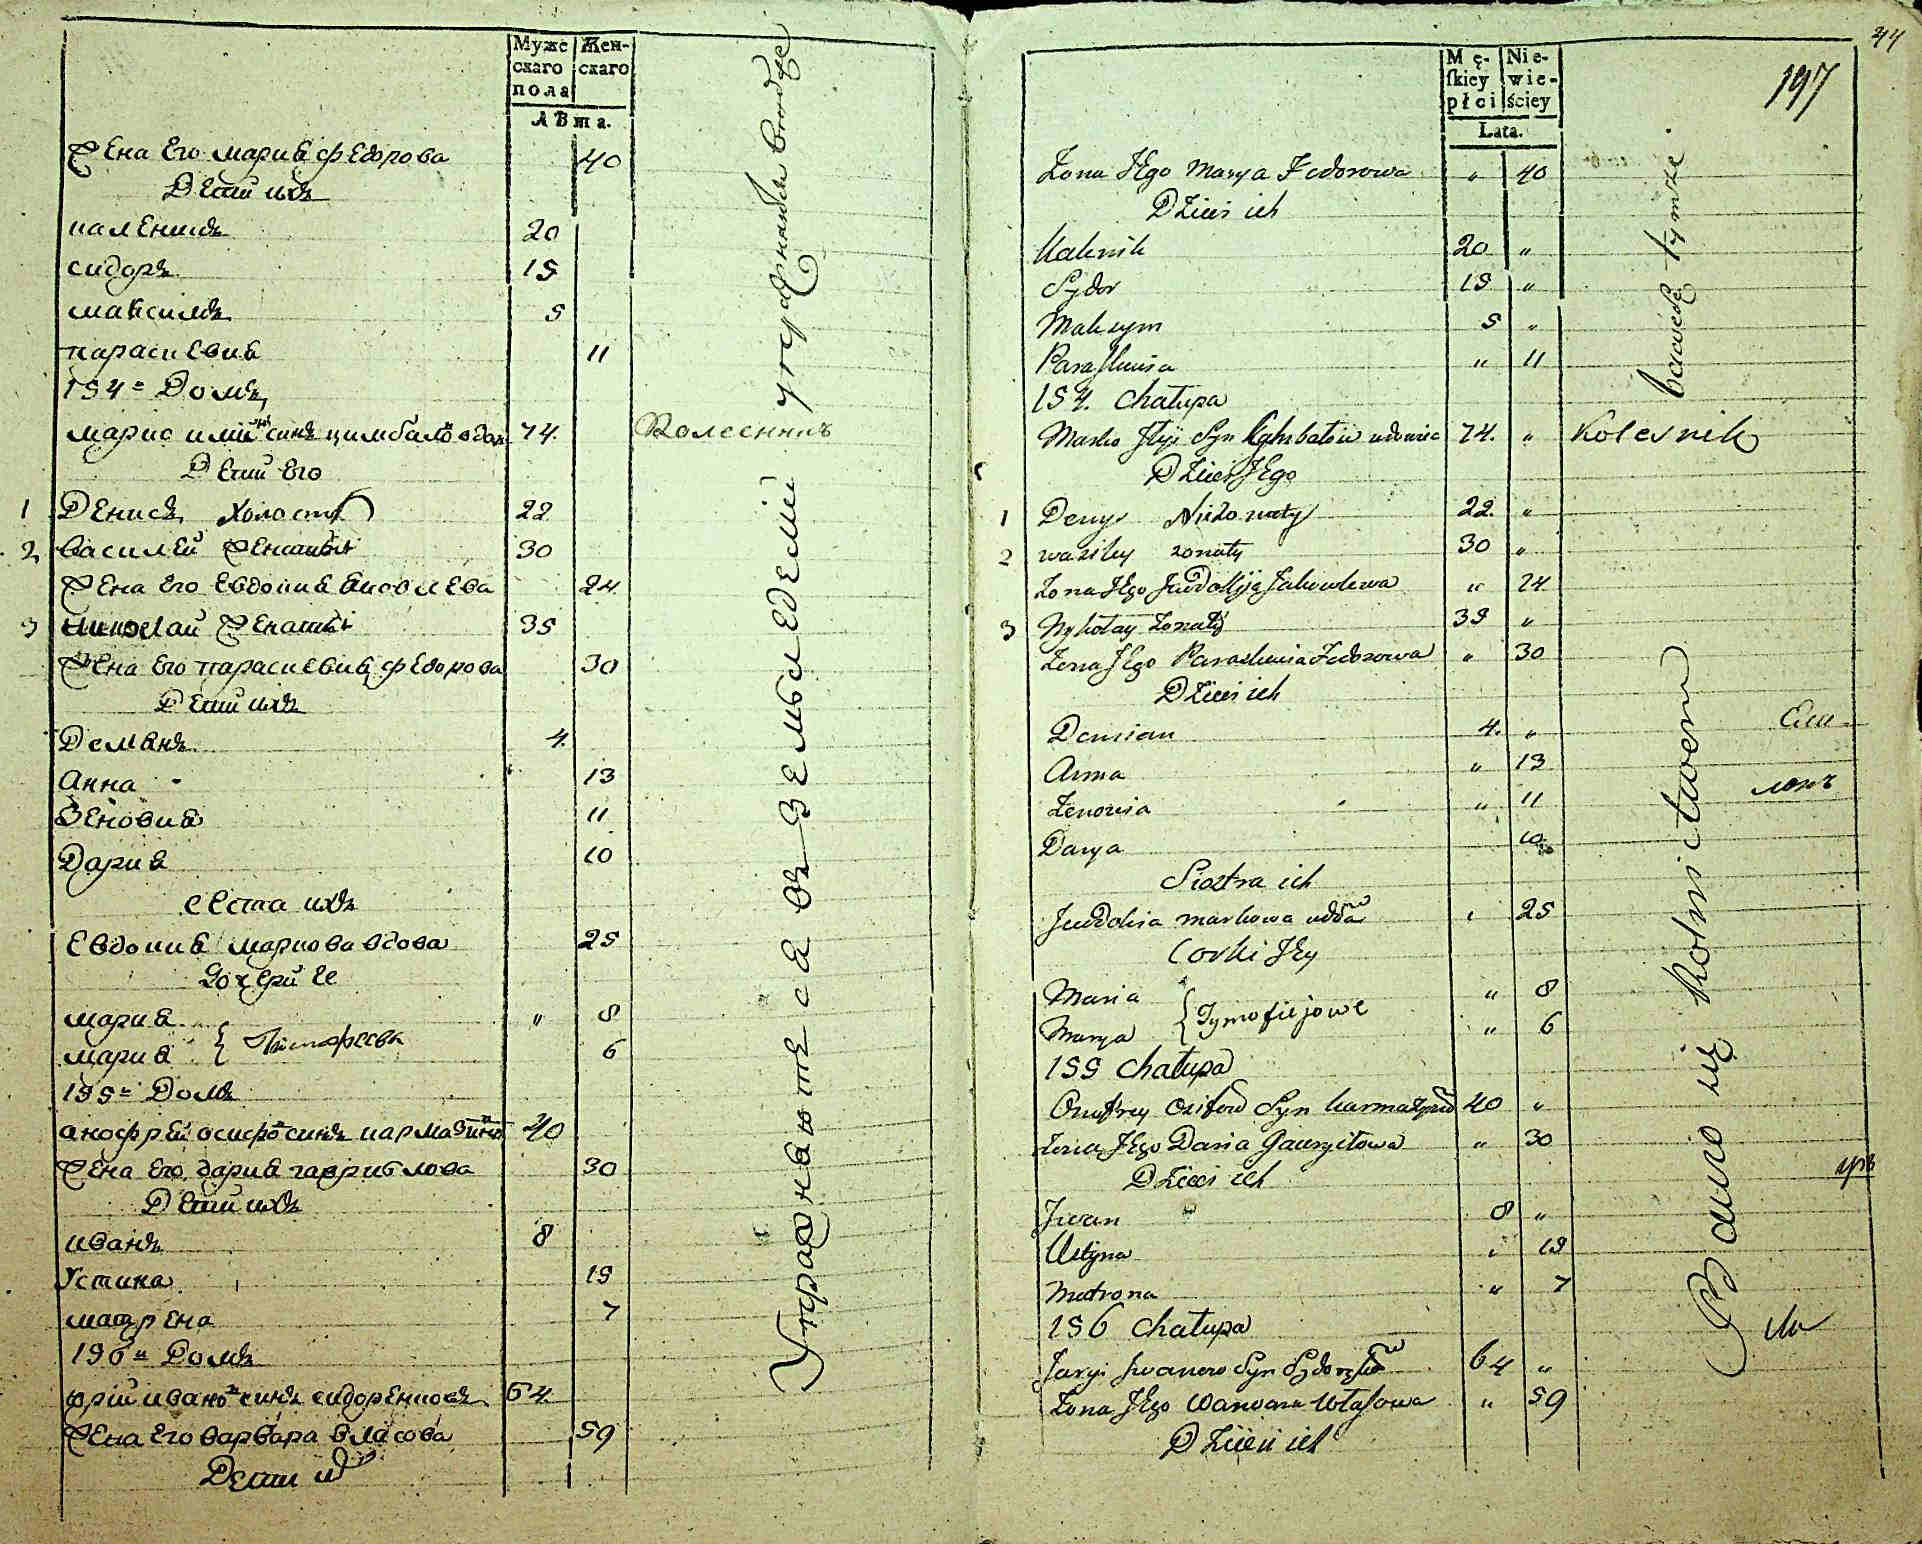 Муже скаго пола
Женскаго
Лѣта.
Жена Его Мария Федорова 40
Дети ихъ
каленикъ 20
сидоръ 15
максимъ 5
параскевия 11
154 Домъ
марко илиинъ синъ цимбалов вдовъ 74. Колесникъ
Дети Его
1 Денисъ Холостъ 22
2 василей Женатый 30
Жена Его Евдокия яковлева 24
3 Николай Женатый 35
Жена Его параскевия Федорова 30
Дети ихъ
Демянъ 4
Анна 13
Зеновия 11
Дария 10
сестра ихъ
Евдокия маркова вдова 25
Дочери Ее
мария " 8
мария 6
155 Домъ
анофрей осифовъ синъ кармазинъ 40
Жена Его дария гаврилова 30
Дети ихъ
иванъ 8
Устина 15
матрена 7
156 Домъ
юрий ивановъ синъ сидоренковъ 64
Жена Его варвара власова 59
Дети их
Упражняются въ Земледелии
44
197
Męskiey płci
Niewieściey
Lata.
Żona JEgo Marya Fedorowa " 40
Dzieci ich
Kalenik 20 "
Sydor 15 "
Maksym 5 "
Paraskewia " 11
154. Chałupa
Marko Jlii Syn Cymbałow wdowiec 74. " Kolesnik
Dzieci JEgo
1 Denys Nieżonaty 22. "
2 wasiley żonaty 30 "
Żona JEgo Jewdokija Jakowlewa " 24
3 Nykołay Żonaty 35 "
Żona JEgo Paraskewia Fedorowa " 30
Dzieci ich
Demian 4. "
Anna " 13
Zenowia " 11
Darya 10
Siostra ich
Jewdokia markowa wdowa 25
Corki Jey
Maria " 8
Marya " 6
{ Tymofiejowe
155 Chałupa
Onufrey Osifow Syn karmazyn 40 "
żona JEgo Daria Gawryłowa " 30
Dzieci ich
Jwan 8 "
Ustyna 15
Matrona " 7
156 Chałupa
Juryi Jwanow Syn Sydorenkow 64 "
Żona JEgo Warwara Własowa " 59
Dzieci ich
Bawio się Rolnictwem